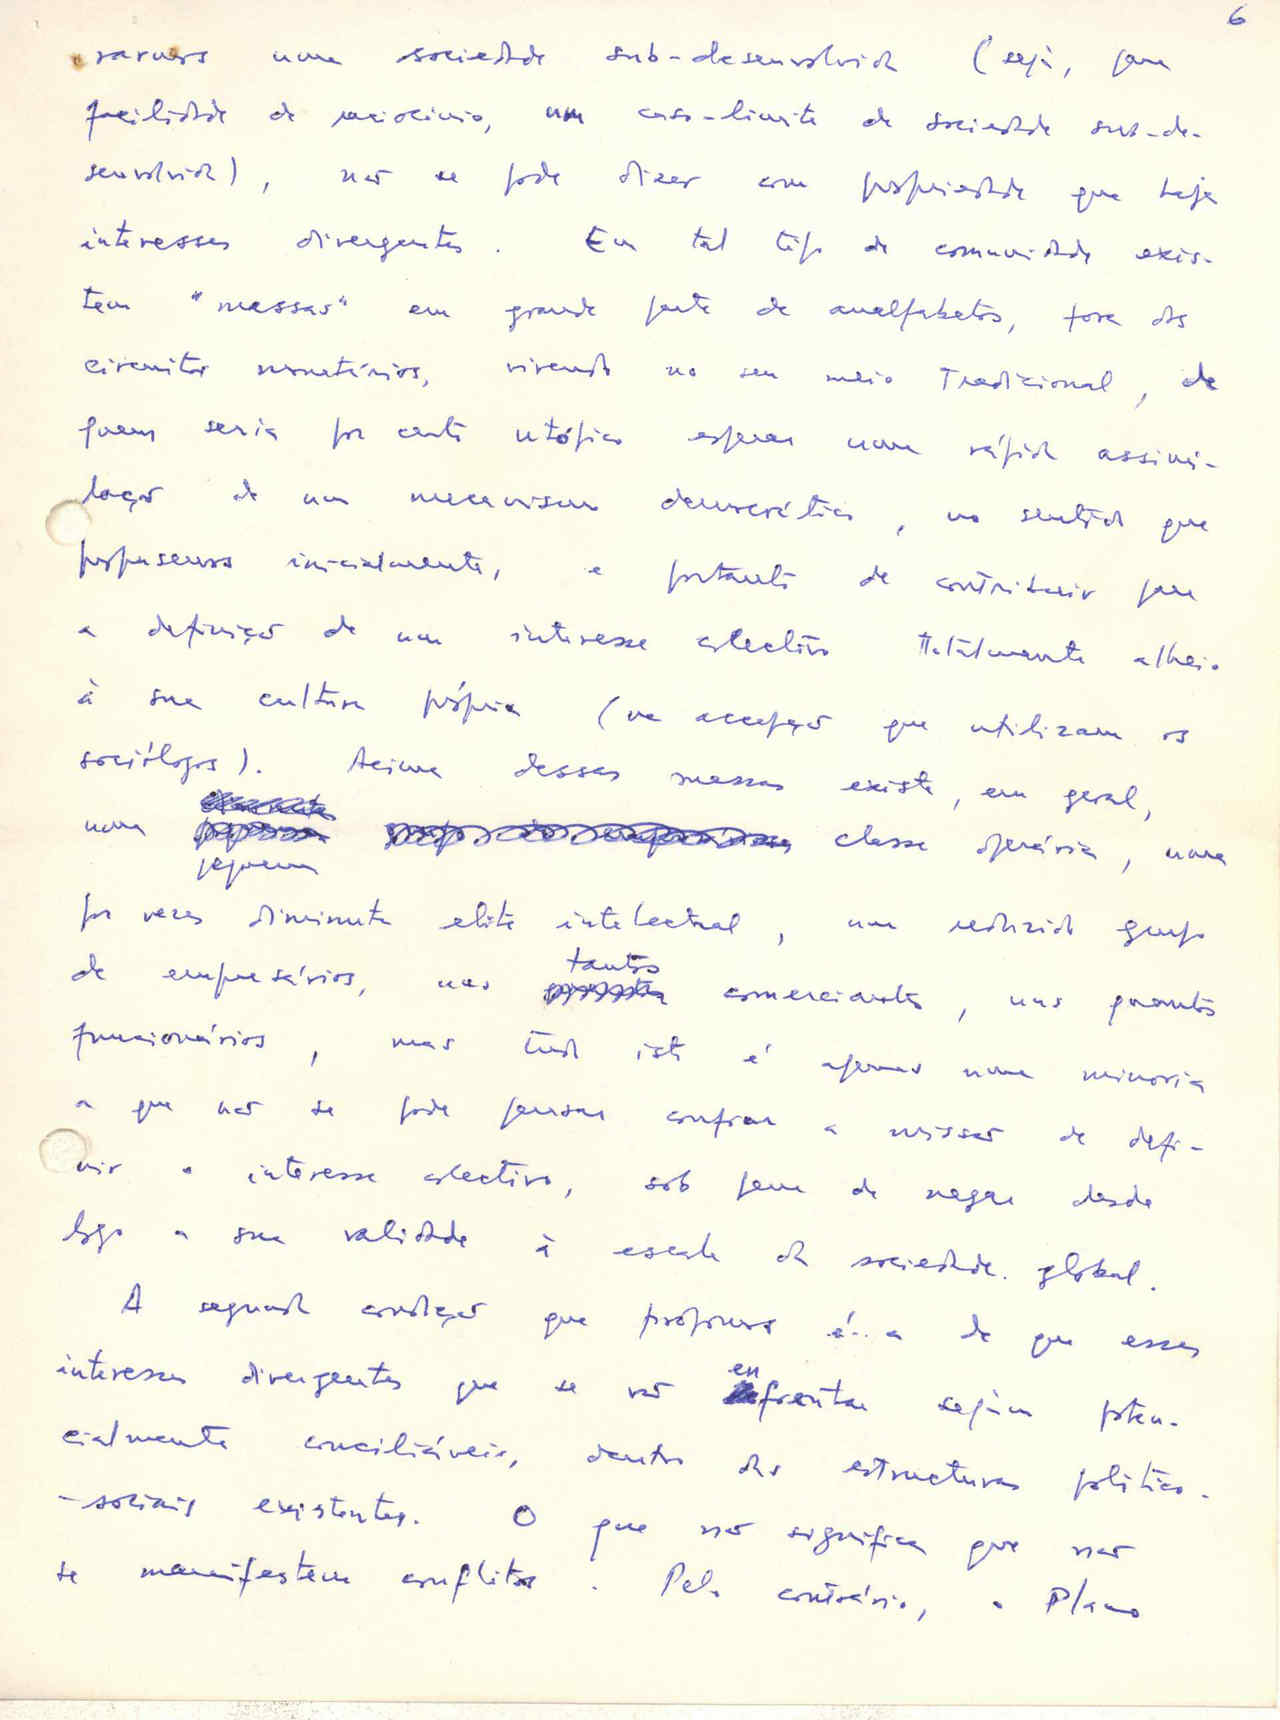 6
rarmos uma sociedade sub-desenvolvida (seja, para
facilidade de raciocínio, um caso-limite de sociedade sub-de-
senvolvida), não se pode dizer com propriedade que haja
interesses divergentes. Em tal tipo de comunidade exis-
tem "massas" em grande parte de analfabetos, fora dos
circuitos monetários, vivendo no seu meio tradicional, de
quem seria por certo utópico esperar uma rápida assimi-
lação de um mecanismo democrático, no sentido que
propusemos inicialmente, e portanto de contribuir para
a definição de um interesse colectivo totalmente alheio
à sua cultura própria (na accepção que utilizam os
sociólogos). Acima dessas massas existe, em geral,
uma pequena classe operária, uma
por vezes diminuta elite intelectual, um reduzido grupo
de empresários, uns tantos comerciantes, uns quantos
funcionários, mas tudo isto é apenas uma minoria
a que não se pode pensar confiar a missão de defi-
nir o interesse colectivo, sob pena de negar desde
logo a sua validade à escala da sociedade global.
A segunda condição que propomos é a de que esses
interesses divergentes que se vão enfrentar sejam poten-
cialmente conciliáveis, dentro das estructuras politico-
-sociais existentes. O que não significa que não
se manifestem conflitos. Pelo contrário, o Plano